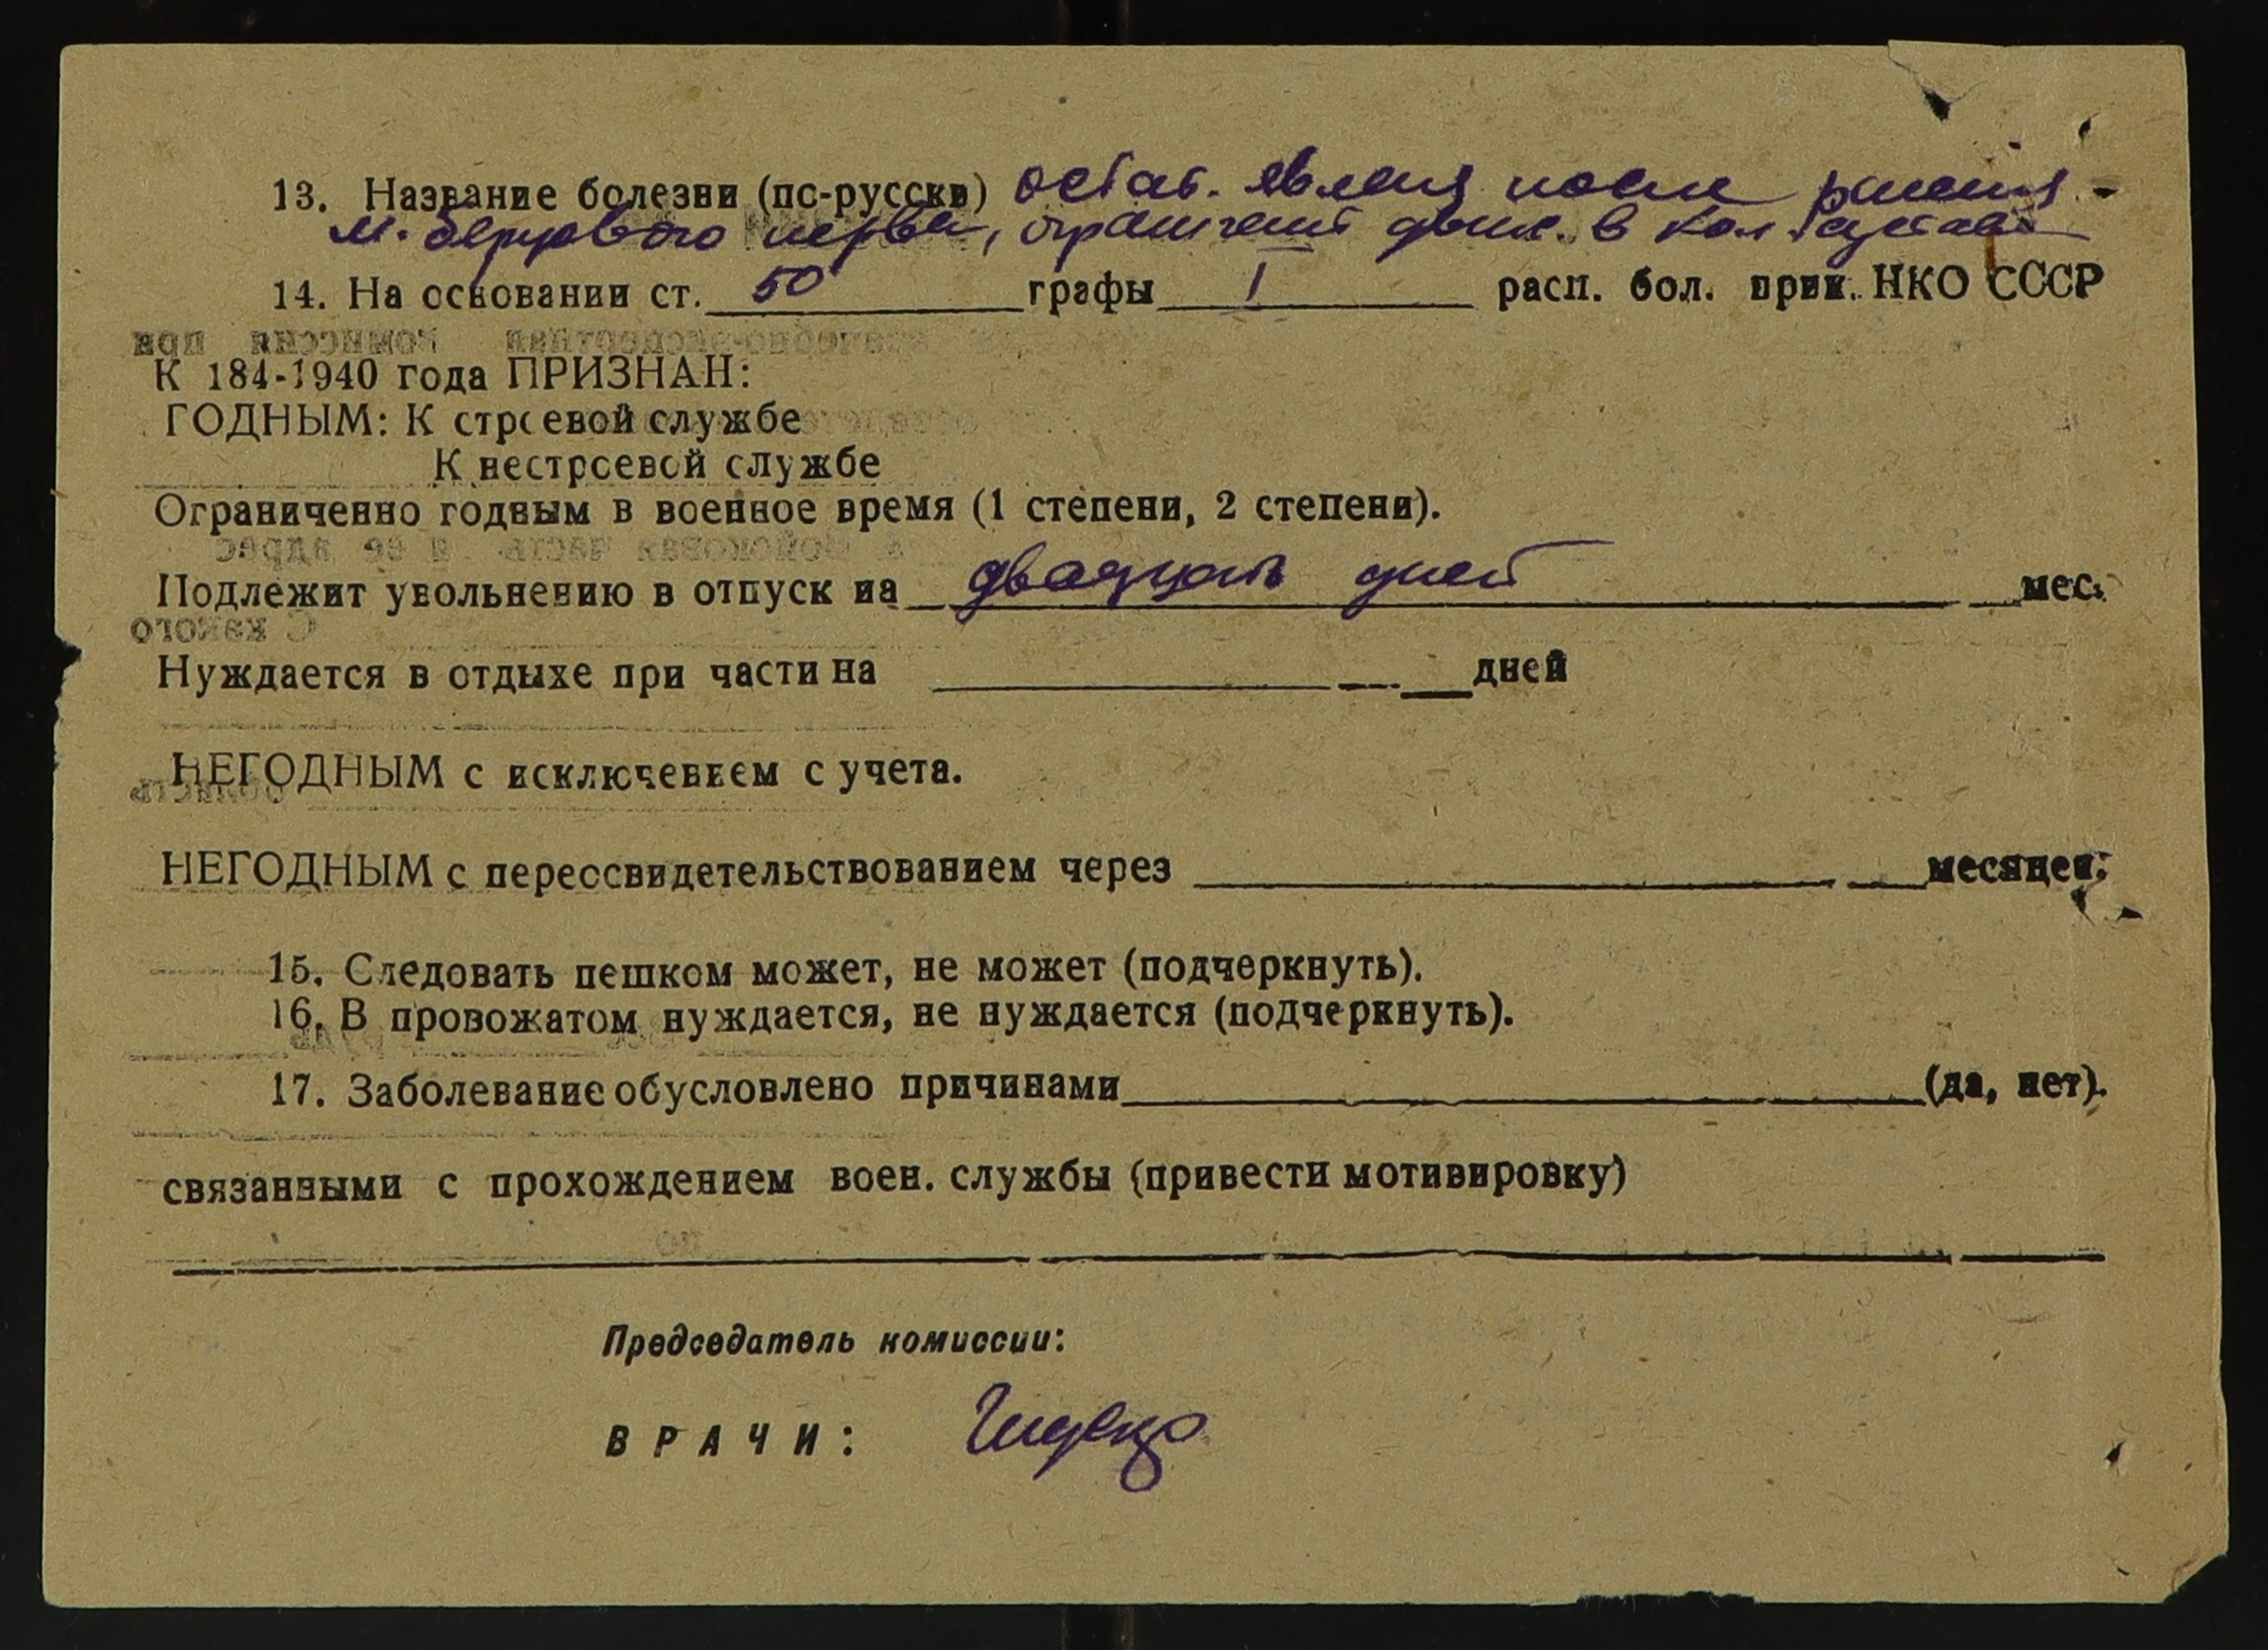 13. Название болезни (по-русски) остат. явления после ранения
м. берцового нерва, ограничен движ. в кол. суставе
14. На основании ст. 50 графы I расп. бол. прик. НКО СССР
К 184-1940 года ПРИЗНАН:
ГОДНЫМ: К строевой службе
К нестроевой службе
Ограниченно годным в военное время (1 степени, 2 степени).
Подлежит увольнению в отпуск на двадцать дней мес.
Нуждается в отдыхе при части на дней
НЕГОДНЫМ с исключением с учета.
НЕГОДНЫМ с переосвидетельствованием через месяцев.
15. Следовать пешком может, не может (подчеркнуть).
16. В провожатом нуждается, не нуждается (подчеркнуть).
17. Заболевание обусловлено причинами (да, нет).
связанными с прохождением воен. службы (привести мотивировку)
Председатель комиссии:
ВРАЧИ: